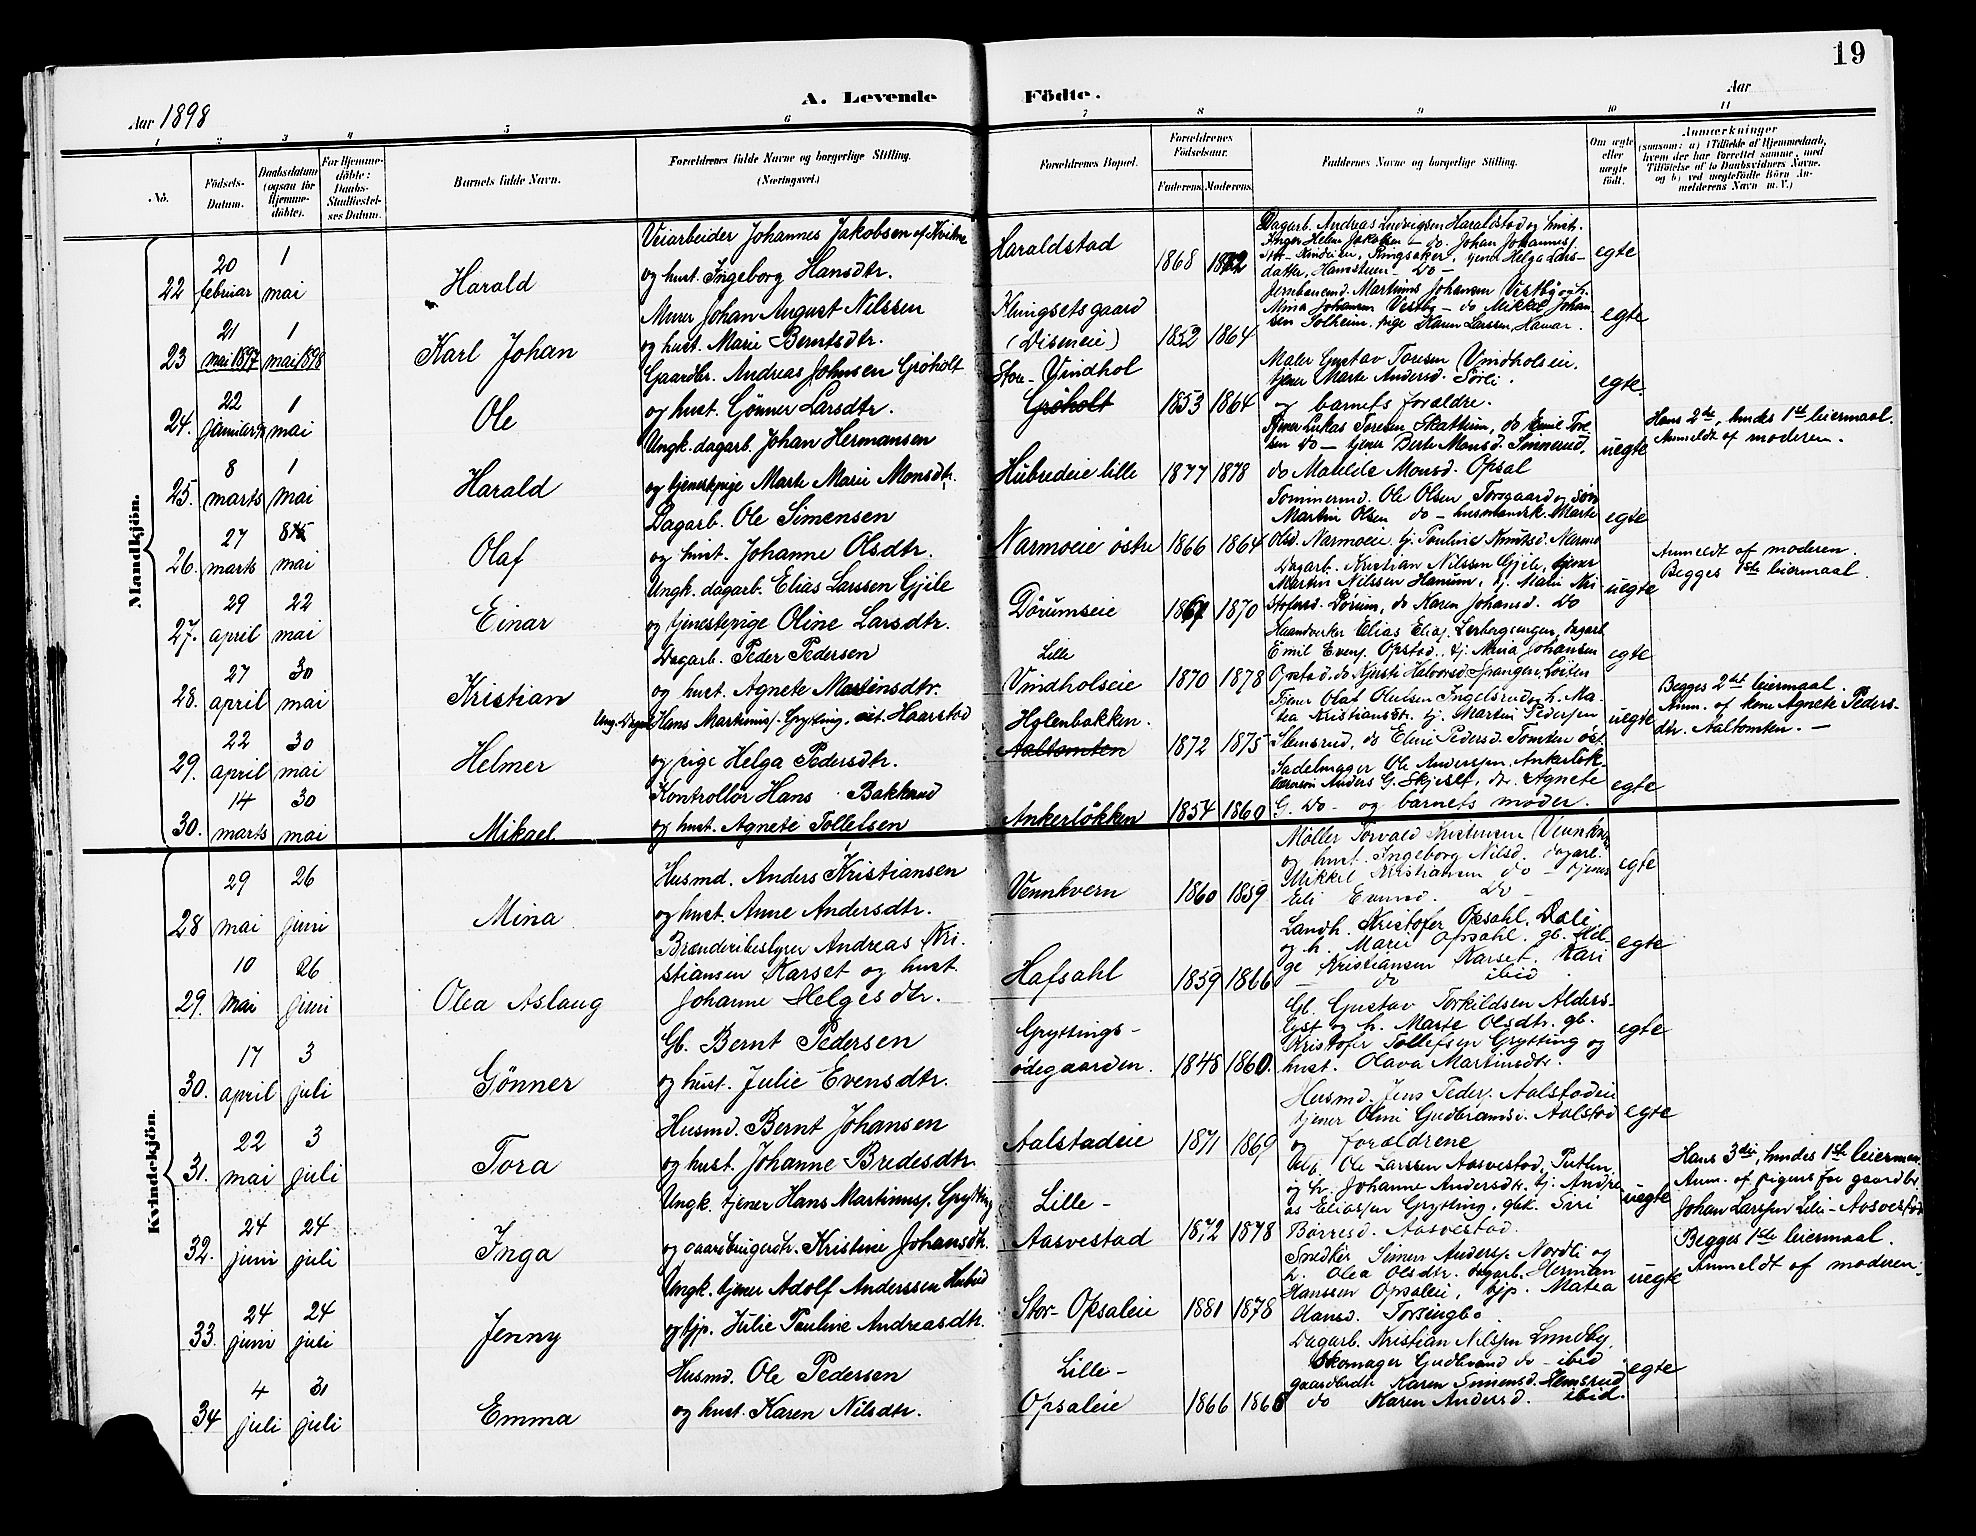 19
A. Levende Födte.
Aar 1898
Aar
1 2 3 4 5 6 7 8 9 10 11
Nö.
Födsels-Datum.
Daabsdatum (ogsaa för Hjemmedöbte).
For Hjemmedöbte: Daabs-Stadfæstelses Datum.
Barnets fulde Navn.
Forældrenes fulde Navne og borgerlige Stilling. (Næringsvei.)
Forældrenes Bopæl.
Forældrenes Födselsaar.
Faderens. Moderens.
Faddernes Navne og borgerlige Stilling.
Om ægte eller uægte födt.
Anmærkninger (saasom: a) i Tilfælde af Hjemmedaab, hvem der har forrettet samme, med Tilföielse af to Daabsvidners Navne. og b) ved uægtefödte Börn Anmelderens Navn m. V.)
Mandkjön.
22 20 februar 1 mai Harald
Veiarbeider Johannes Jakobsen af Kvikne
og hust. Ingeborg Hansdtr.
Haraldstad 1868 1872
Dagarb. Andreas Ludvigsen Haraldstad og hust.
Inger Helene Jakobsen – do. Johan Johannes.
datter, Hamstuen – Do –
egte
23 21 mai 1897 1 mai 1898 Karl Johan
Murer Johan August Nilssen
og hust. Marie Berntsdtr.
Klingsetsgaard (Diseneie) 1852 1864
Jernbanemd. Martinus Johansen (Vestby og h.
Mina Johansen Vestby – do Mikkel Johan-
sen Solheim. pige Karen Larssen, Hamar.
egte
24. 22 1 mai Ole
Gaardbr. Andreas Johnsen Gröholt
og hust. Gönner Larsdtr.
Store-Vindhol
Gröholt 1853 1864
Maler Gustav Toresen Vindholseie,
tjener Marte Andersd. Sörli.
og barnets forældre.
egte.
25. 8 marts 1 mai Harald
Ungk. dagarb. Johan Hermansen
og tjenestepige Marte Marie Monsdtr.
Hubredeie lille 1877 1878
Tjener Lukas Toresen Skattum, do Emil Tore-
sen Do – tjener Berte Monsd. Simerud,
do Matilde Monsd. Opsal
uegte
Hans 2de, hendes 1ste leiermaal.
Anmeldt af moderen.
26. 27 marts 8 mai Olaf
Dagarb. Ole Simensen
og hust. Johanne Olsdtr.
Narmoeie östre 1866 1864
Tömmermd. Ole Olsen, Torsgaard og sön
Martin Olsen do – husmandsk. Marte
Olsd. Narmoeie. tj. Pauline Knutsd. Narmo
egte
27. 29 april 22 mai Einar
Ungk. dagarb. Elias Larssen Gjile
og tjenestepige Oline Larsdtr.
Dörumseie 1867 1870
Dagarb. Kristian Nilssen Gjile, tjener
Martin Nilssen Hanum, tj. Marie Kri-
stofersd. Dörum, do Karen Johansd. Do
uegte
Anmeldt af moderen.
Begges 1ste leiermaal.
28. 27 april 30 mai Kristian
Dagarb. Peder Pedersen
og hust. Agnete Martinsdtr.
Lille Vindholseie 1870 1878
Haandverker Elias Elias. Lerbergengen, dagarb.
Emil Evens. Opstad, tj. Mina Johansen
Opstad, do Kjersti Halvorsd. Spangen, Löiten
egte
29. 22 april 30 mai Helmer
Ung. Dagarb. Hans Martinius. Grytting, eit. Haarstad
og pige Helga Pedersdtr.
Holenbakken.
Aaltomten 1872 1875
Tjener Olaf Olufsen Ingelsrud og h. Ma-
tea Kristiansdtr. tj. Martin Pedersen
Stensrud, do Eline Pedersd. Tomten öst.
uegte
Begges 2det leiermaal.
Anm. af kone Agnete Peders-
dtr. Aaltomten. –
30. 14 marts 30 mai Mikael
Kontrollör Hans Bakkerud
og hust. Agnete Tollefsen
Ankerlökken 1854 1860
Sadelmager Ole Anderssen. Ankerlök.
Anders G. Skjeset, do. Agnete
G. Do – og barnets moder.
egte
Kvindekjön.
28 29 mai 26 juni Mina
Husmd. Anders Kristiansen
og hust. Anne Andersdtr.
Vennkvern 1860 1859
Möller Torvald Kristensen (Vennkvern
og hust. Ingeborg Nilsd. dagarb.
Mikkel Kristiansen do – tjener
Eli Evensd. Do –
egte
29. 10 mai 26 juni Olea Aslaug
Brænderibestyrer Andreas Kri-
stiansen Karset og hust.
Johanne Helgesdtr.
Hafsahl 1859 1866
Landh. Kristofer Opsahl. Dali
og h. Marie Opsahl. gb. Hel-
ge Kristiansen Karset. Kari
– do ibid
egte
30. 17 april 3 juli Gönner
Gb. Bernt Pedersen
og hust. Julie Evensdtr.
Gryttings-
ödegaarden. 1848 1860.
Gb. Gustav Torkildsen Alders-
lyst og h. Marte Olsdtr. gb.
Kristofer Tollefsen Grytting og
hust. Olava Martinsdtr.
egte
31. 22 mai 3 juli Tora
Husmd. Bernt Johansen
og hust. Johanne Bredesdtr.
Aalstadeie 1871 1869
Husmd. Jens Peder. Aalstadeie
tjener Oline Gudbransd. Aalstad
og forældrene
egte
32. 24 juni 24 juli Inga
Ungk. tjener Hans Martinius. Grytting
og gaardbrugerdtr. Kristine Johansdtr.
Lille-
Aasvestad 1872 1878
Ole Larssen Aasvestad,
og h. Johanne Andersdtr. tj. Andre
as Eliassen Grytting. gbk. Siri
Börresd. Aasvestad.
uegte
Hans 3die, hendes 1ste leiermaa
Anm. af pigens far gaardbr.
Johan Larssen Lille-Aasvestad
33. 24 juni 24 juli Jenny
Ungk. tjener Adolf Anderssen Hubred
og tjp. Julie Pauline Andreasdtr.
Stor-Opsaleie 1881 1878
Snedker Simen Anders. Nordli og
h. Olea Olsdtr. dagarb. Herman
Hanssen Opsaleie, tjp. Matea
Hansd. Torsingbö.
uegte
Begges 1ste leiermaal.
Anmeldt af moderen.
34 4 juli 31 juli Emma
Husmd. Ole Pedersen
og hust. Karen Nilsdtr.
Lille-
Opsaleie 1866 1866
Dagarb. Kristian Nilssen Lundby,
Skomager Gudbrand do – ibid
gaardbrdt. Karen Simensd. Stensrud
do Karen Andersd. ibid.
egte